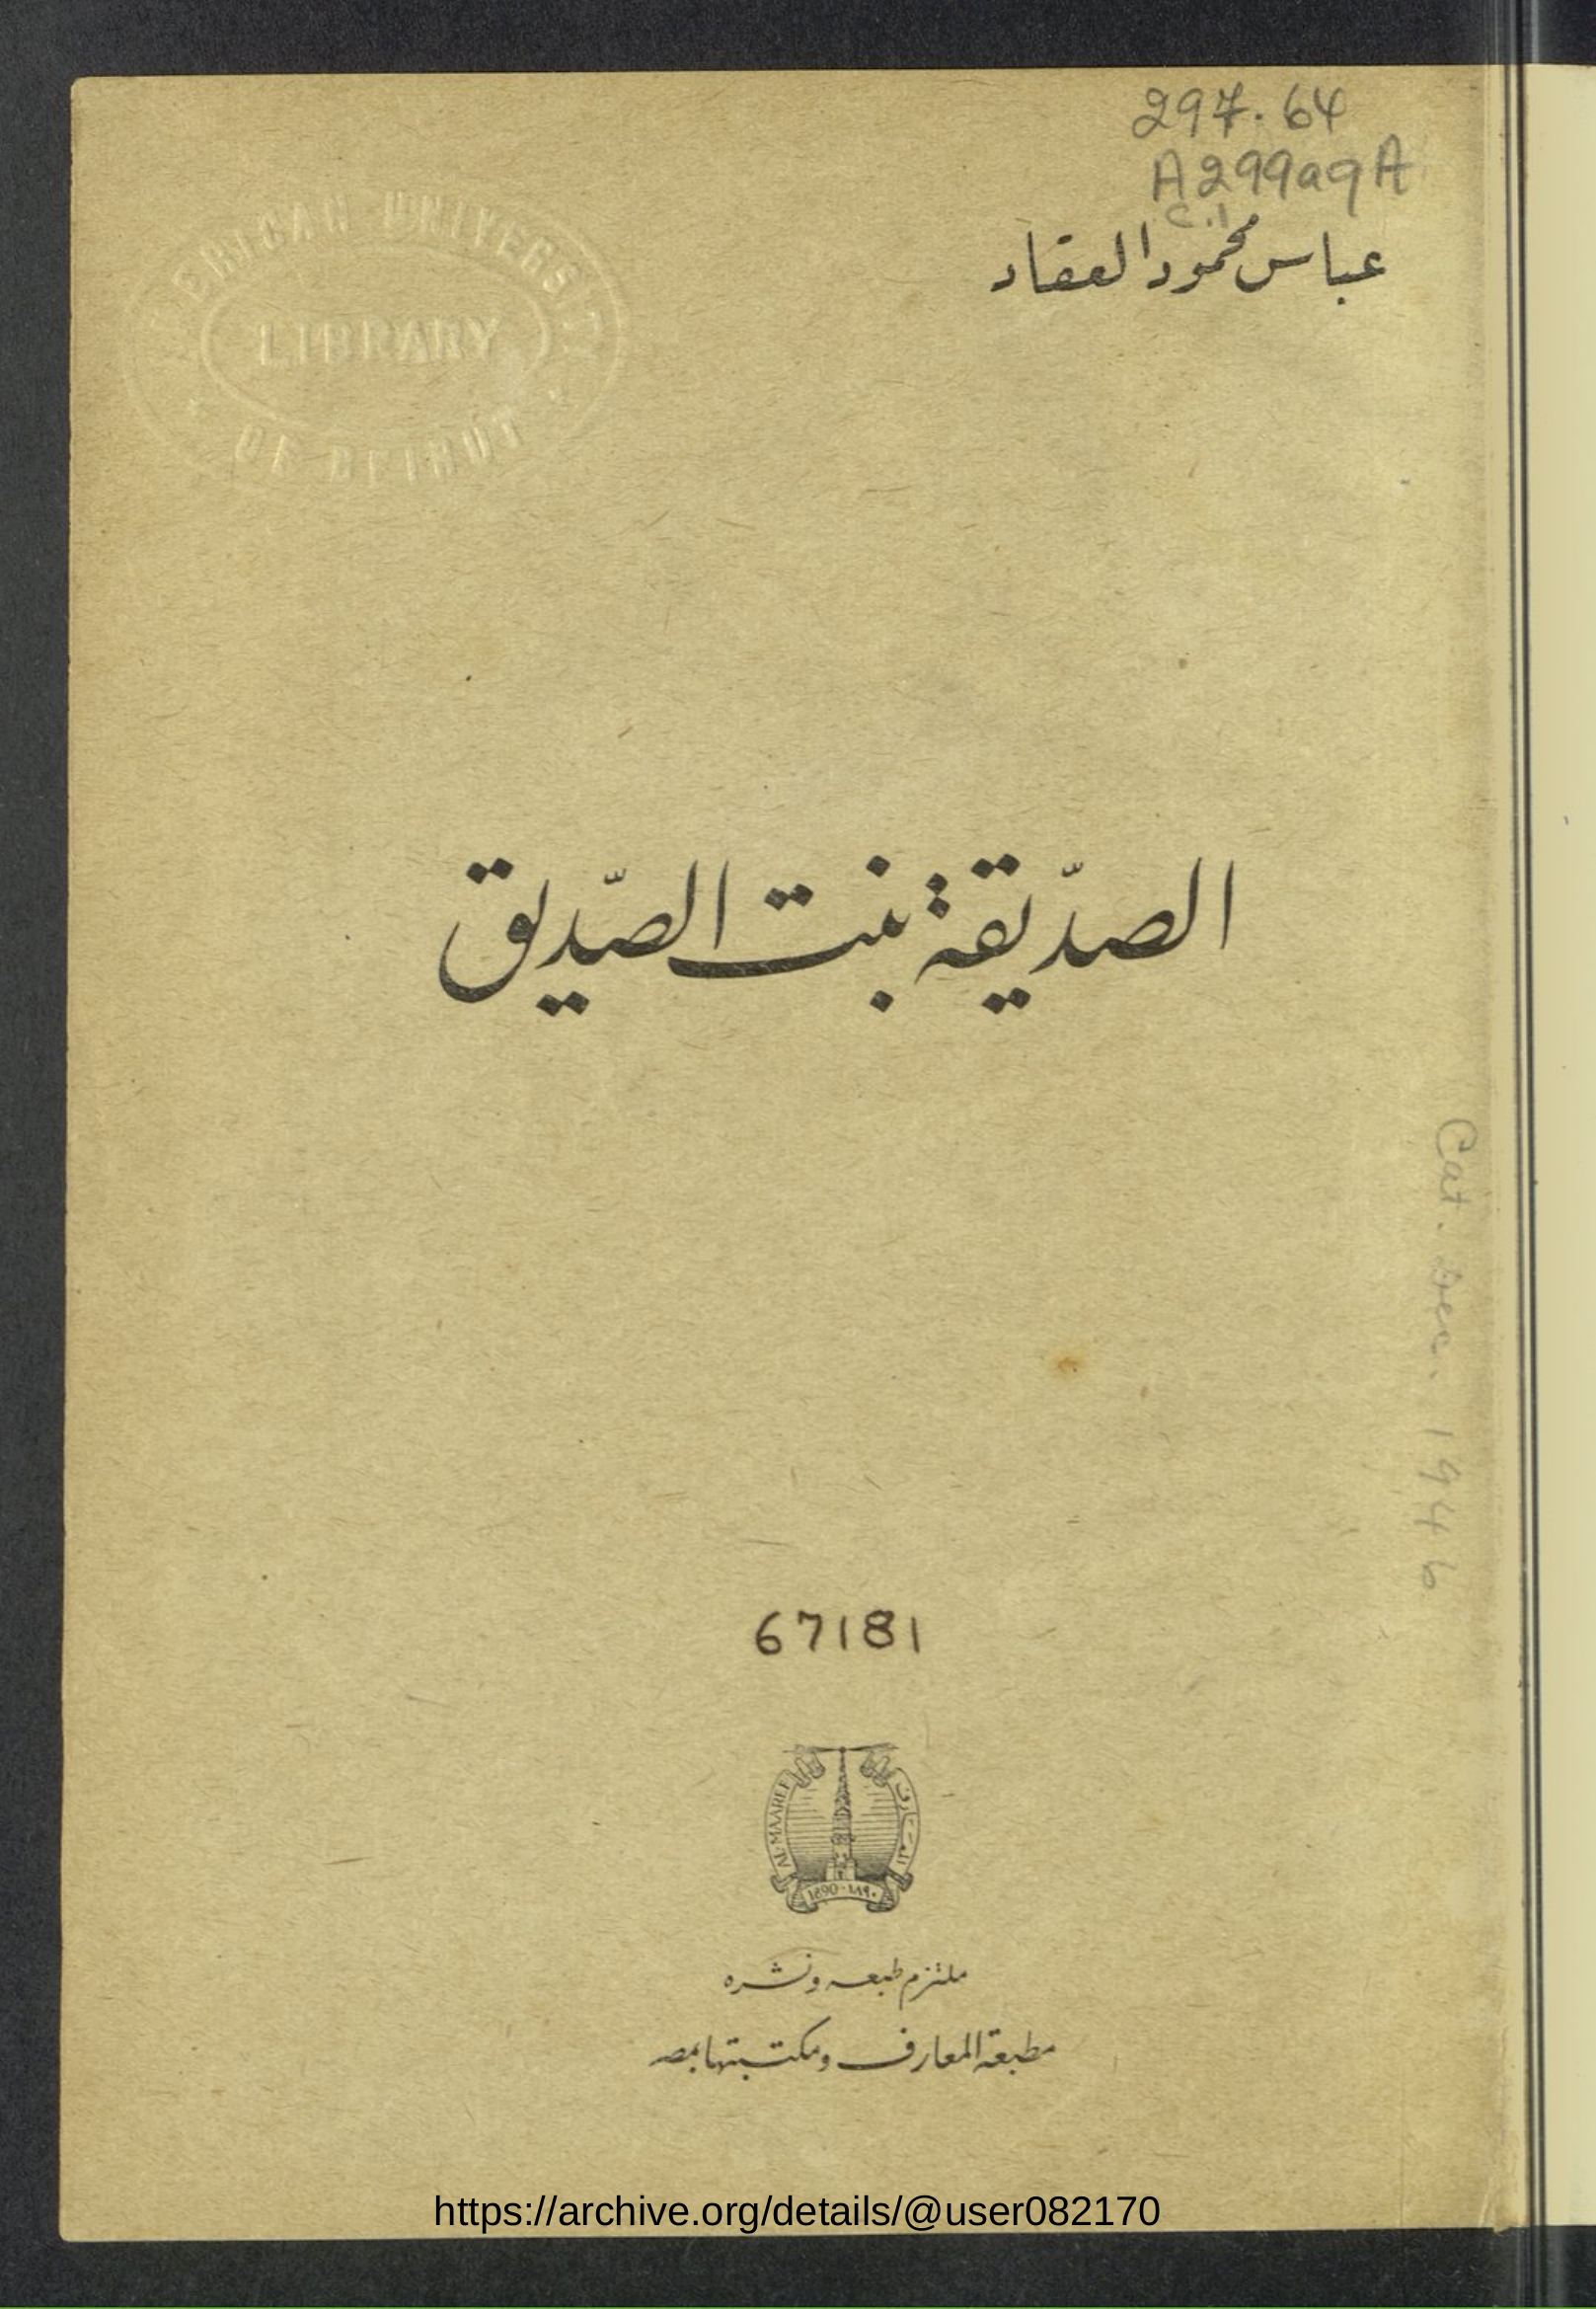 297.64
A299aqA
c.1
عباس محمود العقاد
AMERICAN UNIVERSITY
LIBRARY
OF BEIRUT
الصدّيقة بنت الصدّيق
Cat. Dec. 1946
67181
AL-MAAREF
1890 - ١٨٩٠
ملتزم طبعه ونشره
مطبعة المعارف ومكتبتها بمصر
https://archive.org/details/@user082170